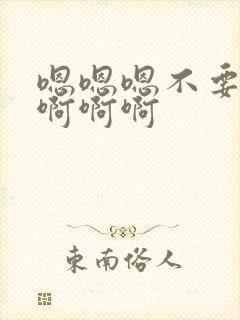 嗯嗯嗯不要
啊啊啊
東南俗人